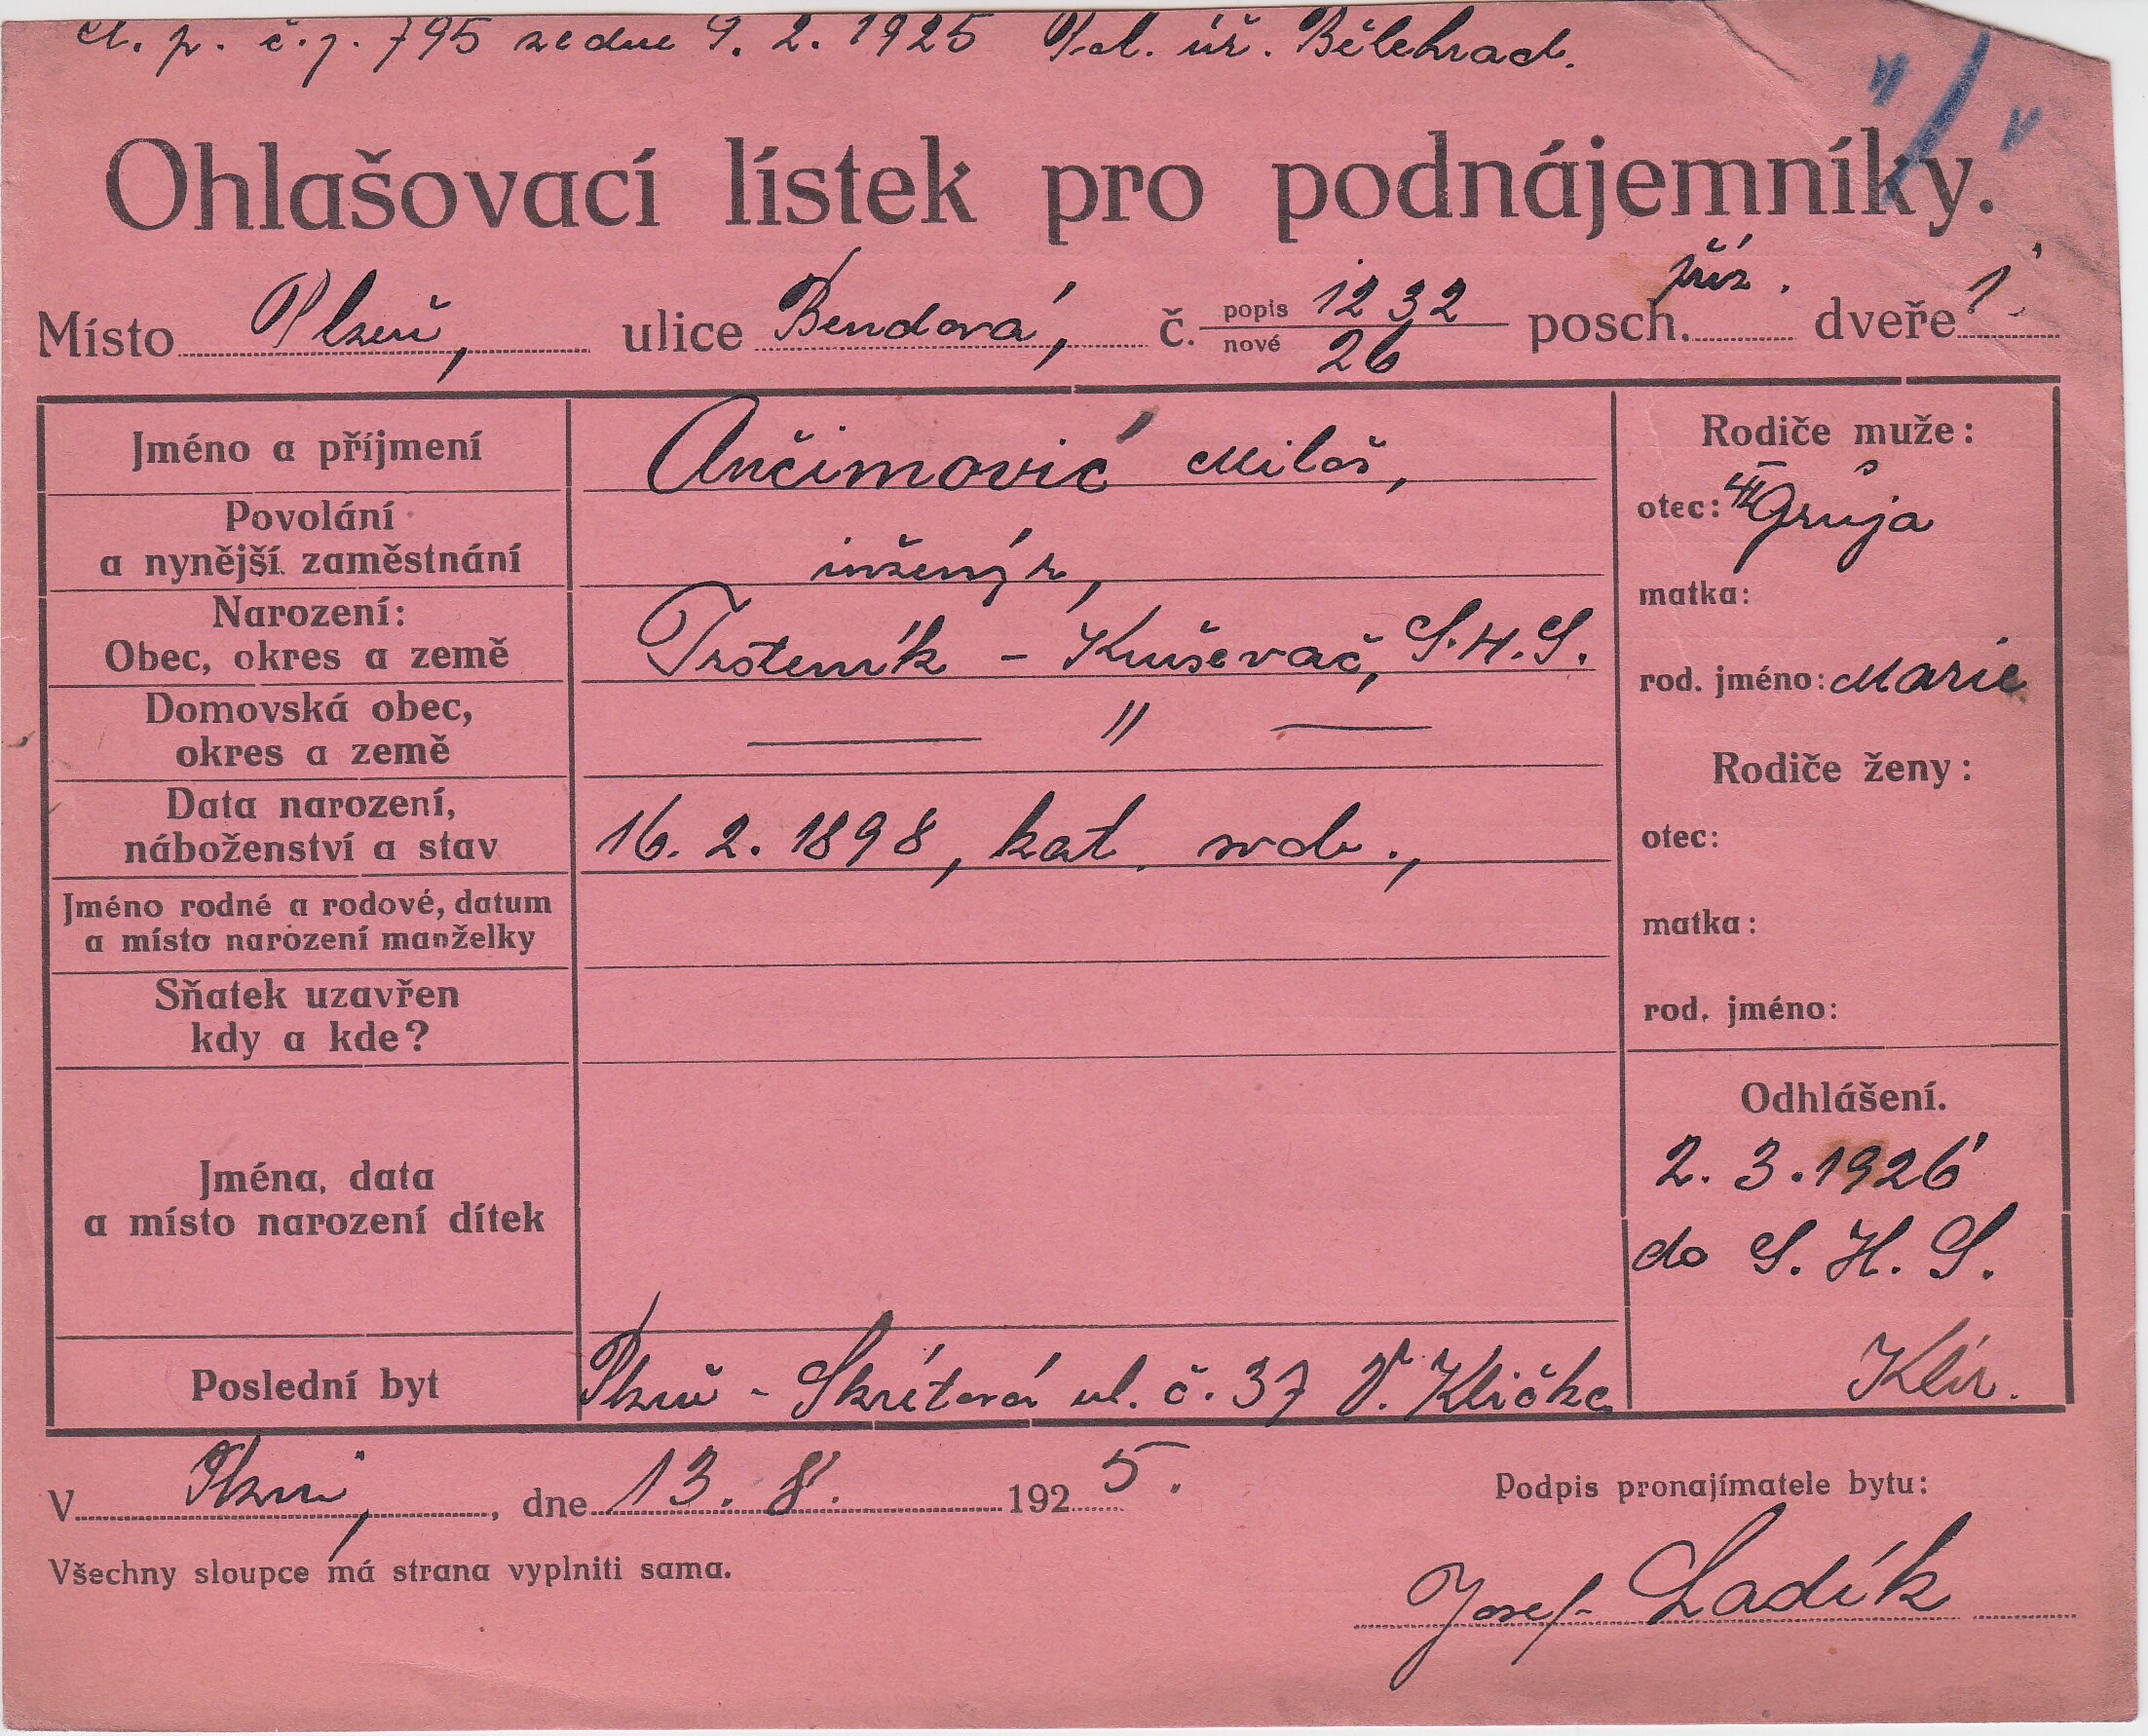 č. j. 795 ze dne 9. 2. 1925 úř. Bělehrad.
Ohlašovací lístek pro podnájemníky.
Místo Plzeň, ulice Bendová, č. popis 1232 nové 26 posch. příz. dveře 1
Jméno a příjmení
Ančimović Miloš,
Povolání
a nynější zaměstnání
inženýr,
Narození:
Obec, okres a země
Trstenik - Kruševač, S.H.S.
Domovská obec,
okres a země
— " —
Data narození,
náboženství a stav
16. 2. 1898, kat. svob.,
Jméno rodné a rodové, datum
a místo narození manželky
Sňatek uzavřen
kdy a kde?
Jména, data
a místo narození dítek
Poslední byt
Plzeň - Skrétová ul. č. 37 V. Klička
Rodiče muže:
otec: Gruja
matka:
rod. jméno: Marie
Rodiče ženy:
otec:
matka:
rod. jméno:
Odhlášení.
2. 3. 1926
do S. H. S.
Klír.
V Plzni, dne 13. 8. 1925.
Všechny sloupce má strana vyplniti sama.
Podpis pronajímatele bytu:
Josef Ladík